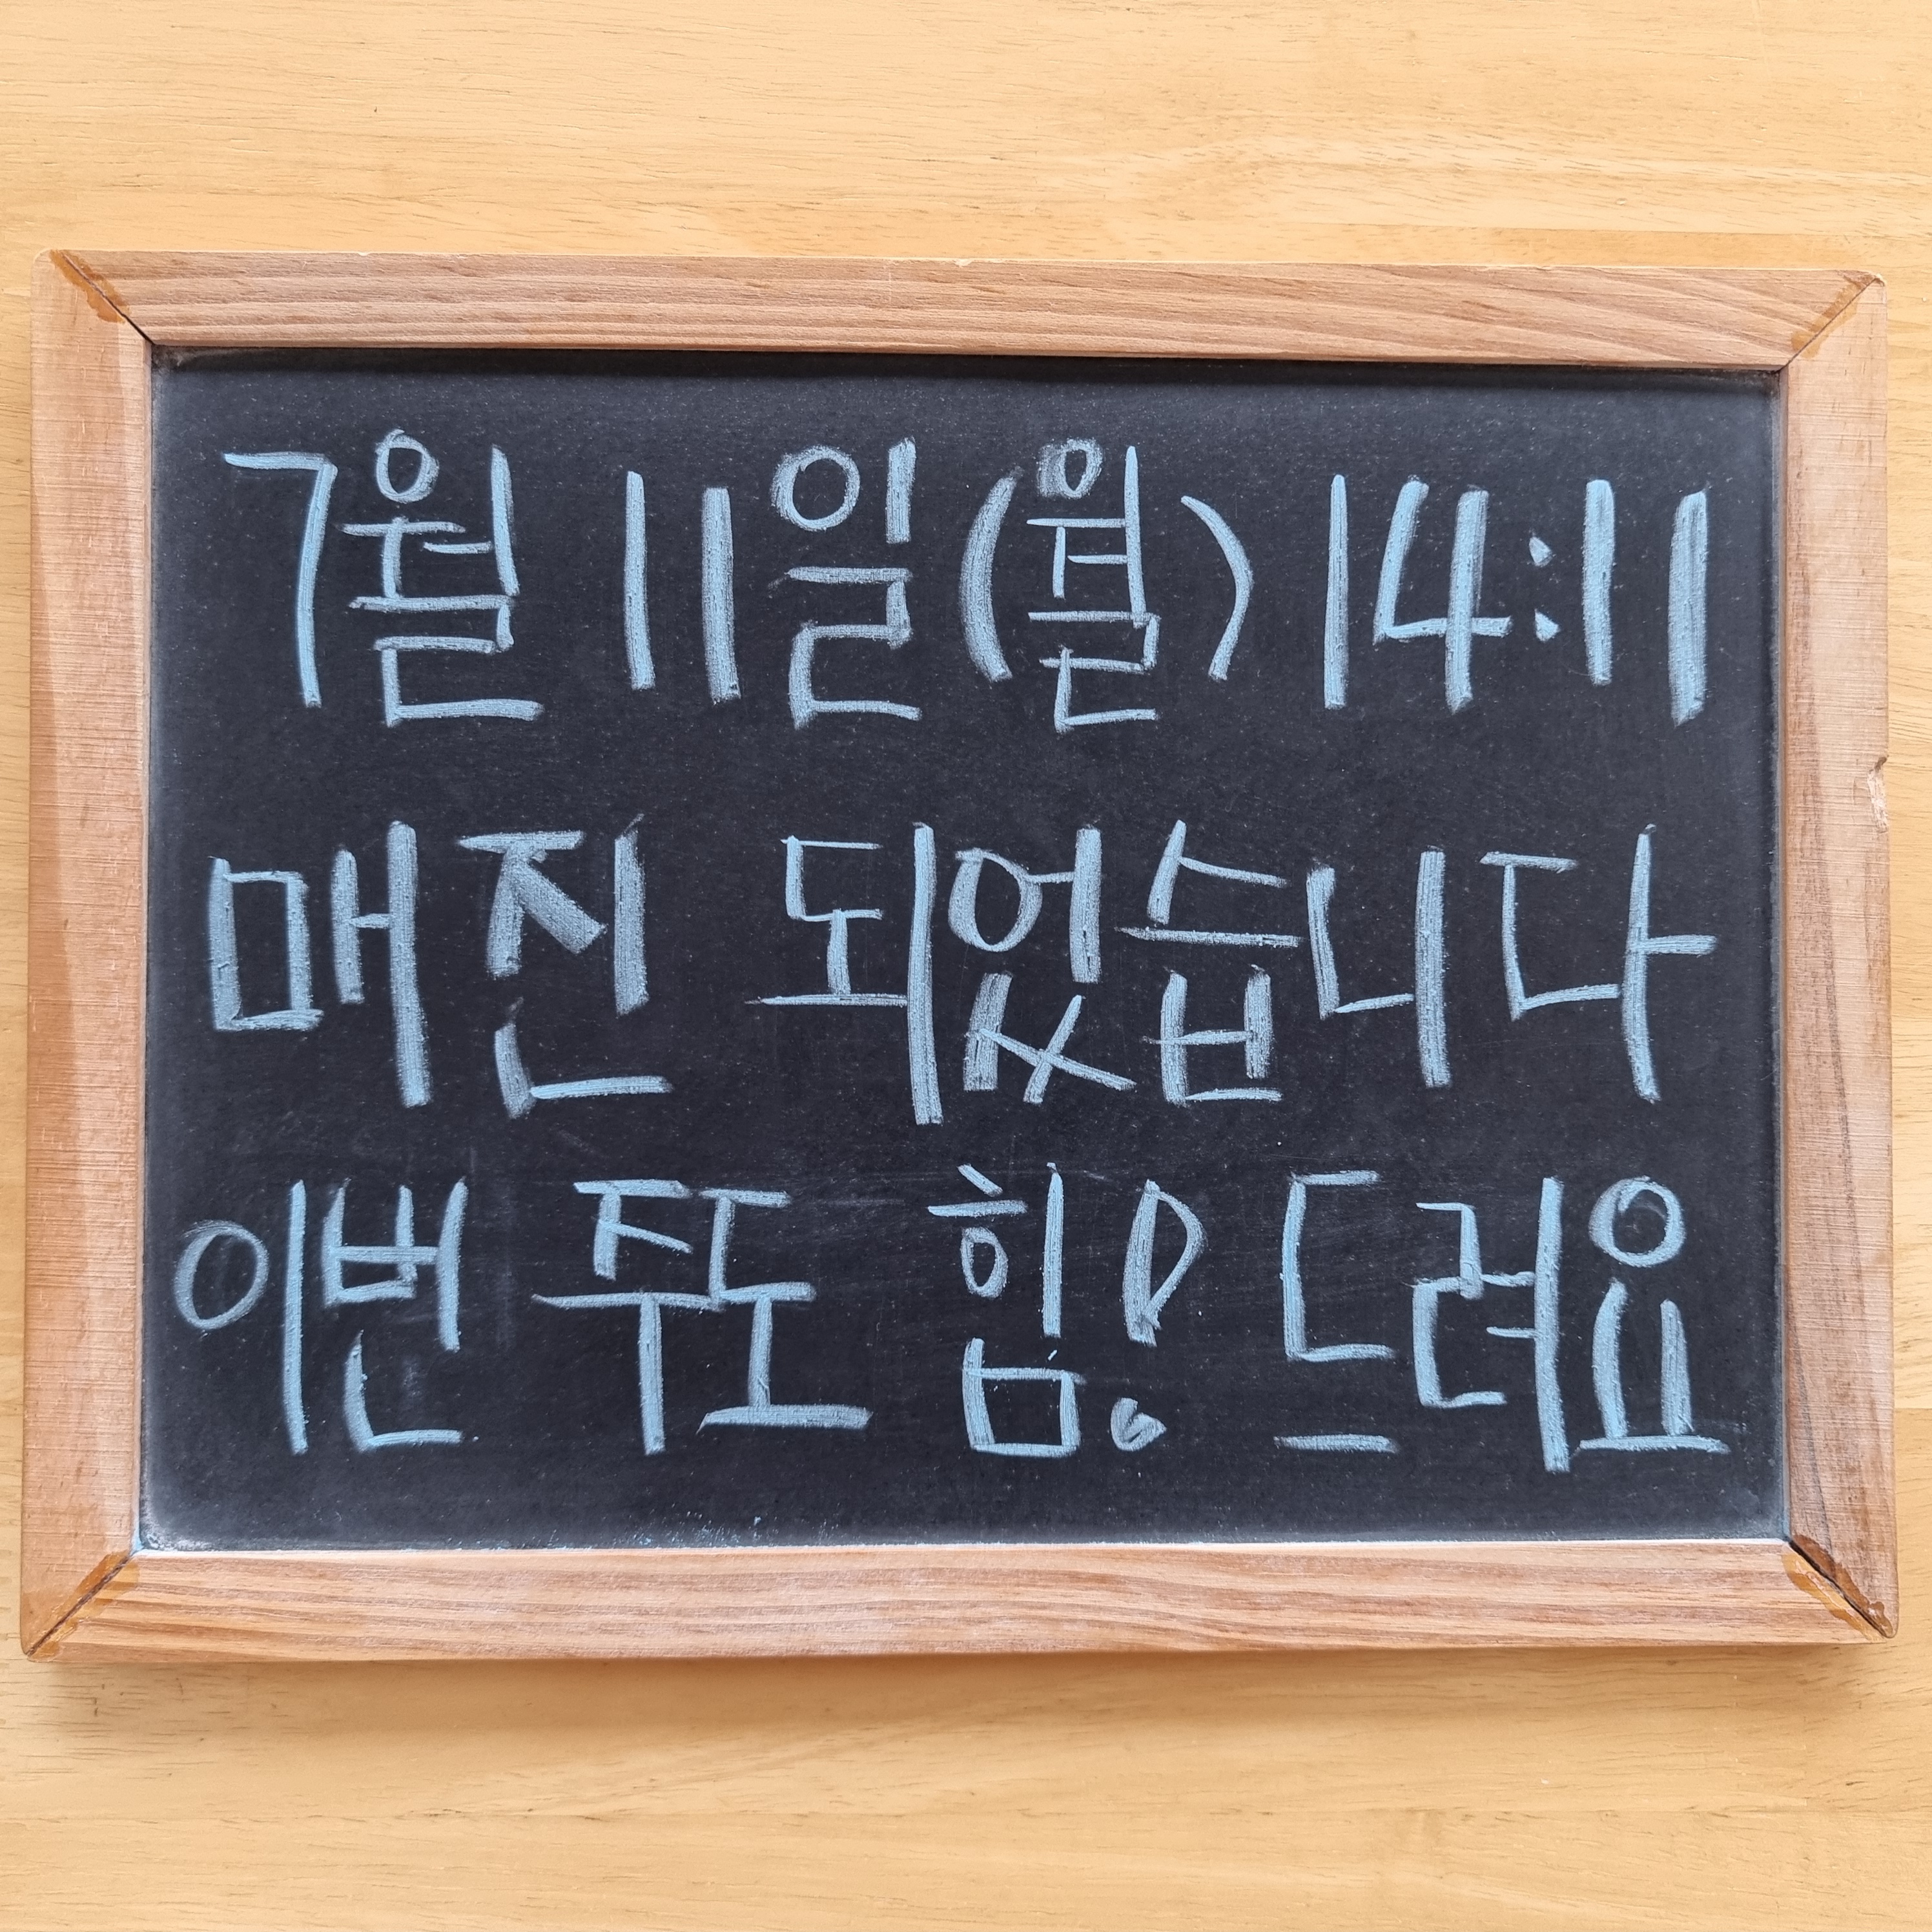 7월 11일(월) 14:11
매진 되었습니다
이번 주도 힘! 드려요